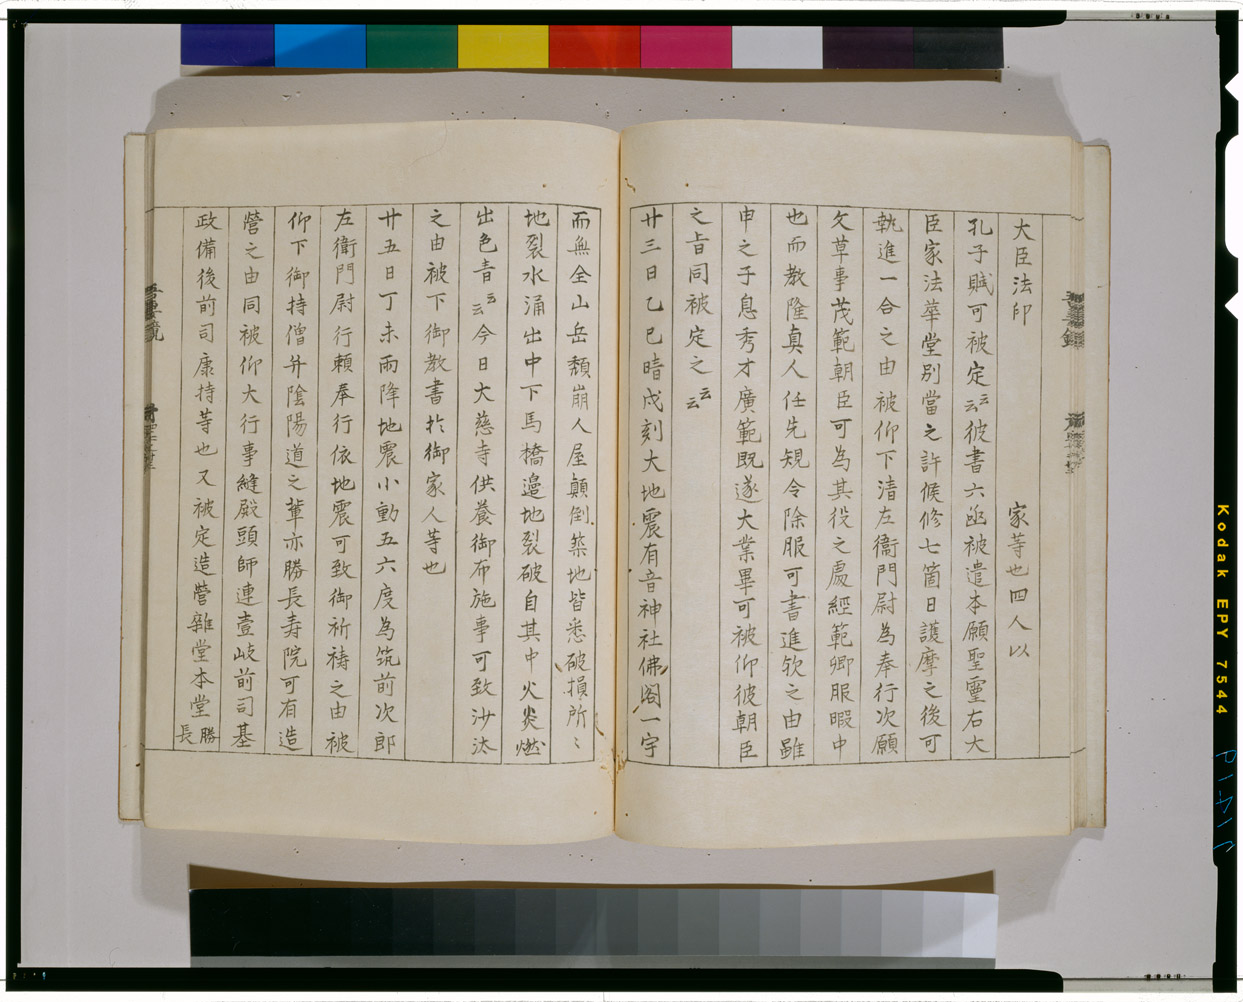 大臣法印　家等也四人以
孔子賦可被定云云彼書六函被遣本願聖霊右大
臣家法華堂別當之許候修七箇日護摩之後可
執進一合之由被仰下清左衛門尉為奉行次願
文草事茂範朝臣可為其役之處經範卿服暇中
也而教隆真人任先規令除服可書進欤之由雖
申之子息秀才廣範既遂大業畢可被仰彼朝臣
之旨同被定之云云
廿三日乙巳晴戌刻大地震有音神社佛閣一宇
而無全山岳頽崩人屋顛倒築地皆悉破損所〻
地裂水涌出中下馬橋邊地裂破自其中火炎燃
出色青云云今日大慈寺供養御布施事可致沙汰
之由被下御教書於御家人等也
廿五日丁未雨降地震小動五六度為筑前次郎
左衛門尉行頼奉行依地震可致御祈禱之由被
仰下御持僧并陰陽道之輩亦勝長寿院可有造
營之由同被仰大行事縫殿頭師連壹岐前司基
政備後前司康持等也又被定造營雜堂本堂勝長
Kodak EPY 7544